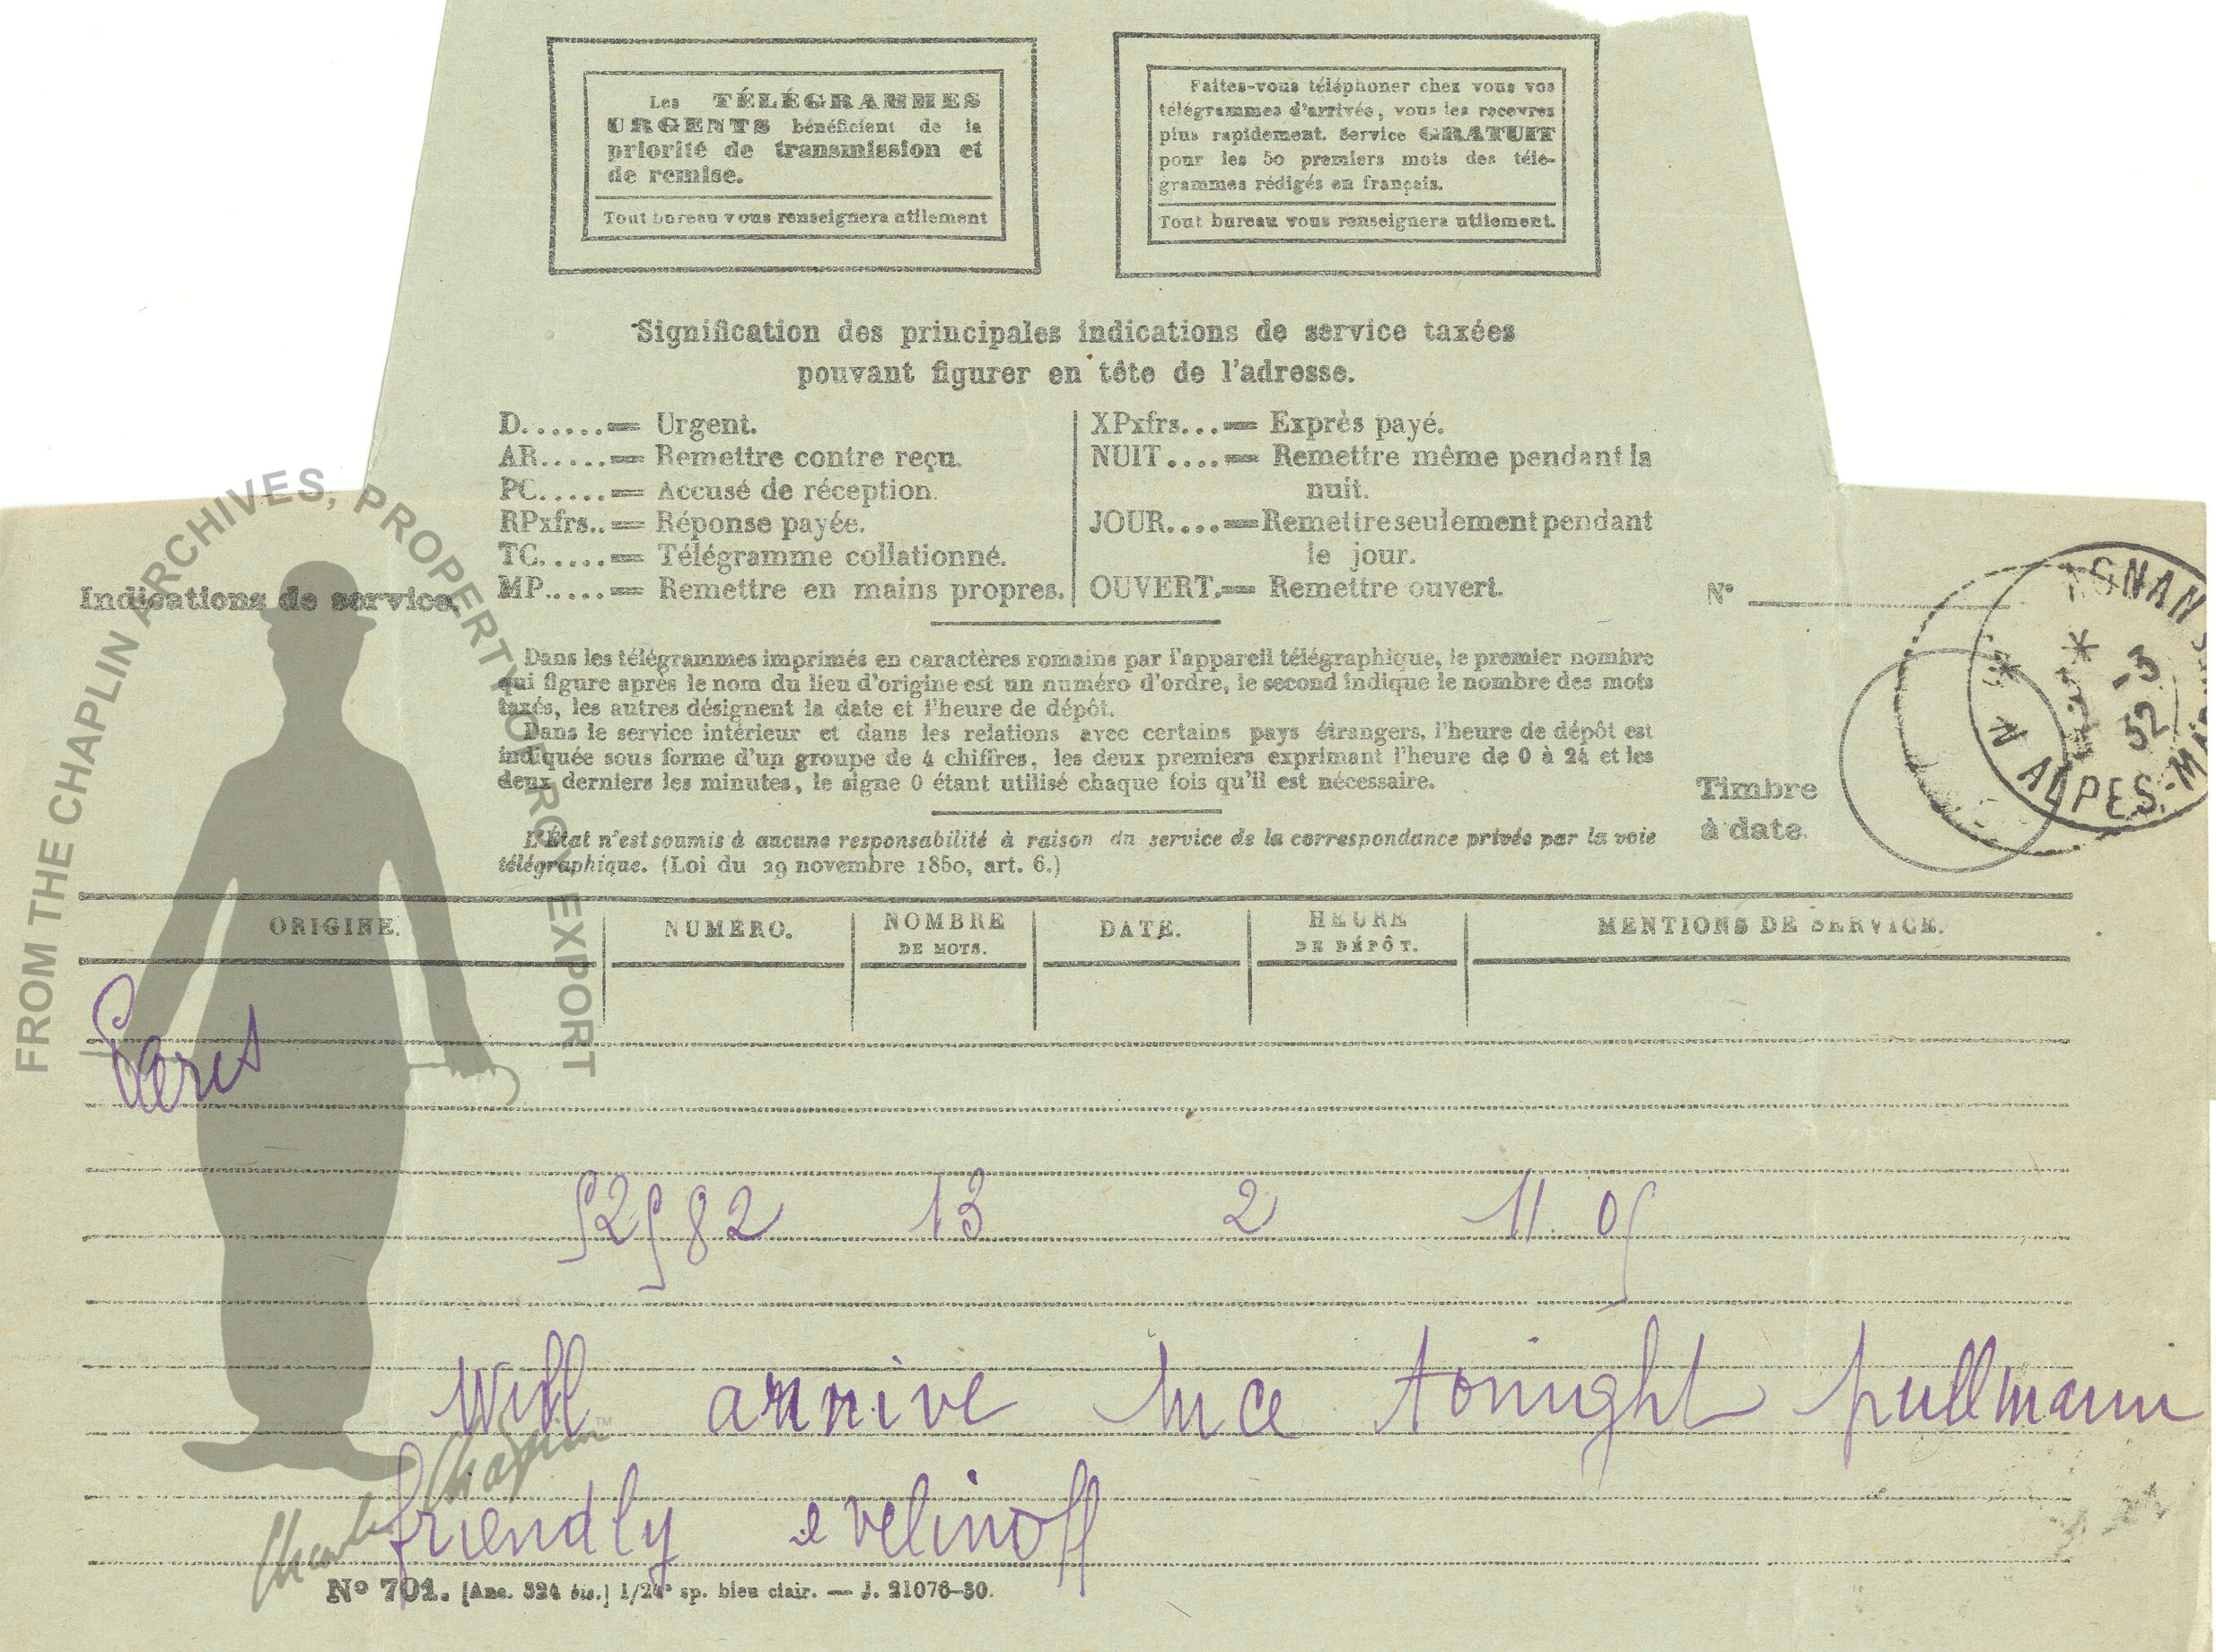 Les TÉLÉGRAMMES
URGENTS bénéficient de la
priorité de transmission et
de remise.
Tout bureau vous renseignera utilement
Faites-vous téléphoner chez vous vos
télégrammes d'arrivée, vous les recevrez
plus rapidement. Service GRATUIT
pour les 50 premiers mots des télé-
grammes rédigés en français.
Tout bureau vous renseignera utilement.
Signification des principales indications de service taxées
pouvant figurer en tête de l'adresse.
D......= Urgent.
AR.....= Remettre contre reçu.
PC.....= Accusé de réception.
RPxfrs..= Réponse payée.
TC.....= Télégramme collationné.
MP.....= Remettre en mains propres.
XPxfrs...= Exprès payé.
NUIT....= Remettre même pendant la
nuit.
JOUR....= Remettre seulement pendant
le jour.
OUVERT.= Remettre ouvert.
Indications de service.
N°
Dans les télégrammes imprimés en caractères romains par l'appareil télégraphique, le premier nombre
qui figure après le nom du lieu d'origine est un numéro d'ordre, le second indique le nombre des mots
taxés, les autres désignent la date et l'heure de dépôt.
Dans le service intérieur et dans les relations avec certains pays étrangers, l'heure de dépôt est
indiquée sous forme d'un groupe de 4 chiffres, les deux premiers exprimant l'heure de 0 à 24 et les
deux derniers les minutes, le signe 0 étant utilisé chaque fois qu'il est nécessaire.
L'État n'est soumis à aucune responsabilité à raison du service de la correspondance privée par la voie
télégraphique. (Loi du 29 novembre 1850, art. 6.)
Timbre
à date.
-3
32
ALPES-M
ORIGINE. NUMÉRO. NOMBRE DE MOTS. DATE. HEURE DE DÉPÔT. MENTIONS DE SERVICE.
Paris
52582 13 2 11.05
Will arrive nice tonight pullmann
friendly evelinoff
N° 701. [Anc. 324 bis.] 1/24e sp. bleu clair. — J. 21076-30.
FROM THE CHAPLIN ARCHIVES, PROPERTY OF ROY EXPORT
Charlie Chaplin™